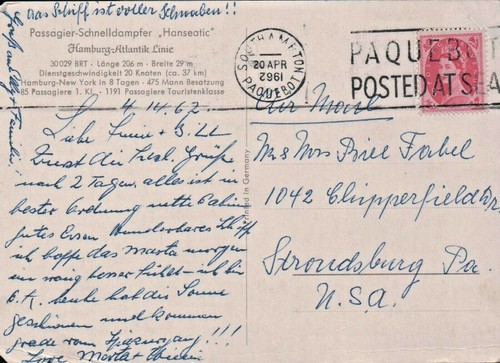 das Schiff ist voller Schwaben!!
Passagier-Schnelldampfer „Hanseatic"
Hamburg-Atlantik Linie
30029 BRT - Länge 206 m - Breite 29 m
Dienstgeschwindigkeit 20 Knoten (ca. 37 km)
Hamburg-New York in 8 Tagen - 475 Mann Besatzung
85 Passagiere 1. Kl. - 1191 Passagiere Touristenklasse
4.14.62
Liebe + Bill
Zuerst die herzl. Grüße
nach 2 Tagen, alles ist in
bester Ordnung nette Cabin
gutes Essen wunderbares Schiff
ich hoffe das Marta morgen
ein wenig besser fühlt - ich bin
O.K. heute hat die Sonne
geschienen und kommen
grade vom Spaziergang!!!
Love Marta +
SOUTHAMPTON
20 APR
1962
PAQUEBOT
PAQUEBOT
POSTED AT SEA
Air Mail
Printed in Germany
Mr & Mrs Bill Fabel
1042 Chipperfield Dr
Stroudsburg Pa.
U.S.A.